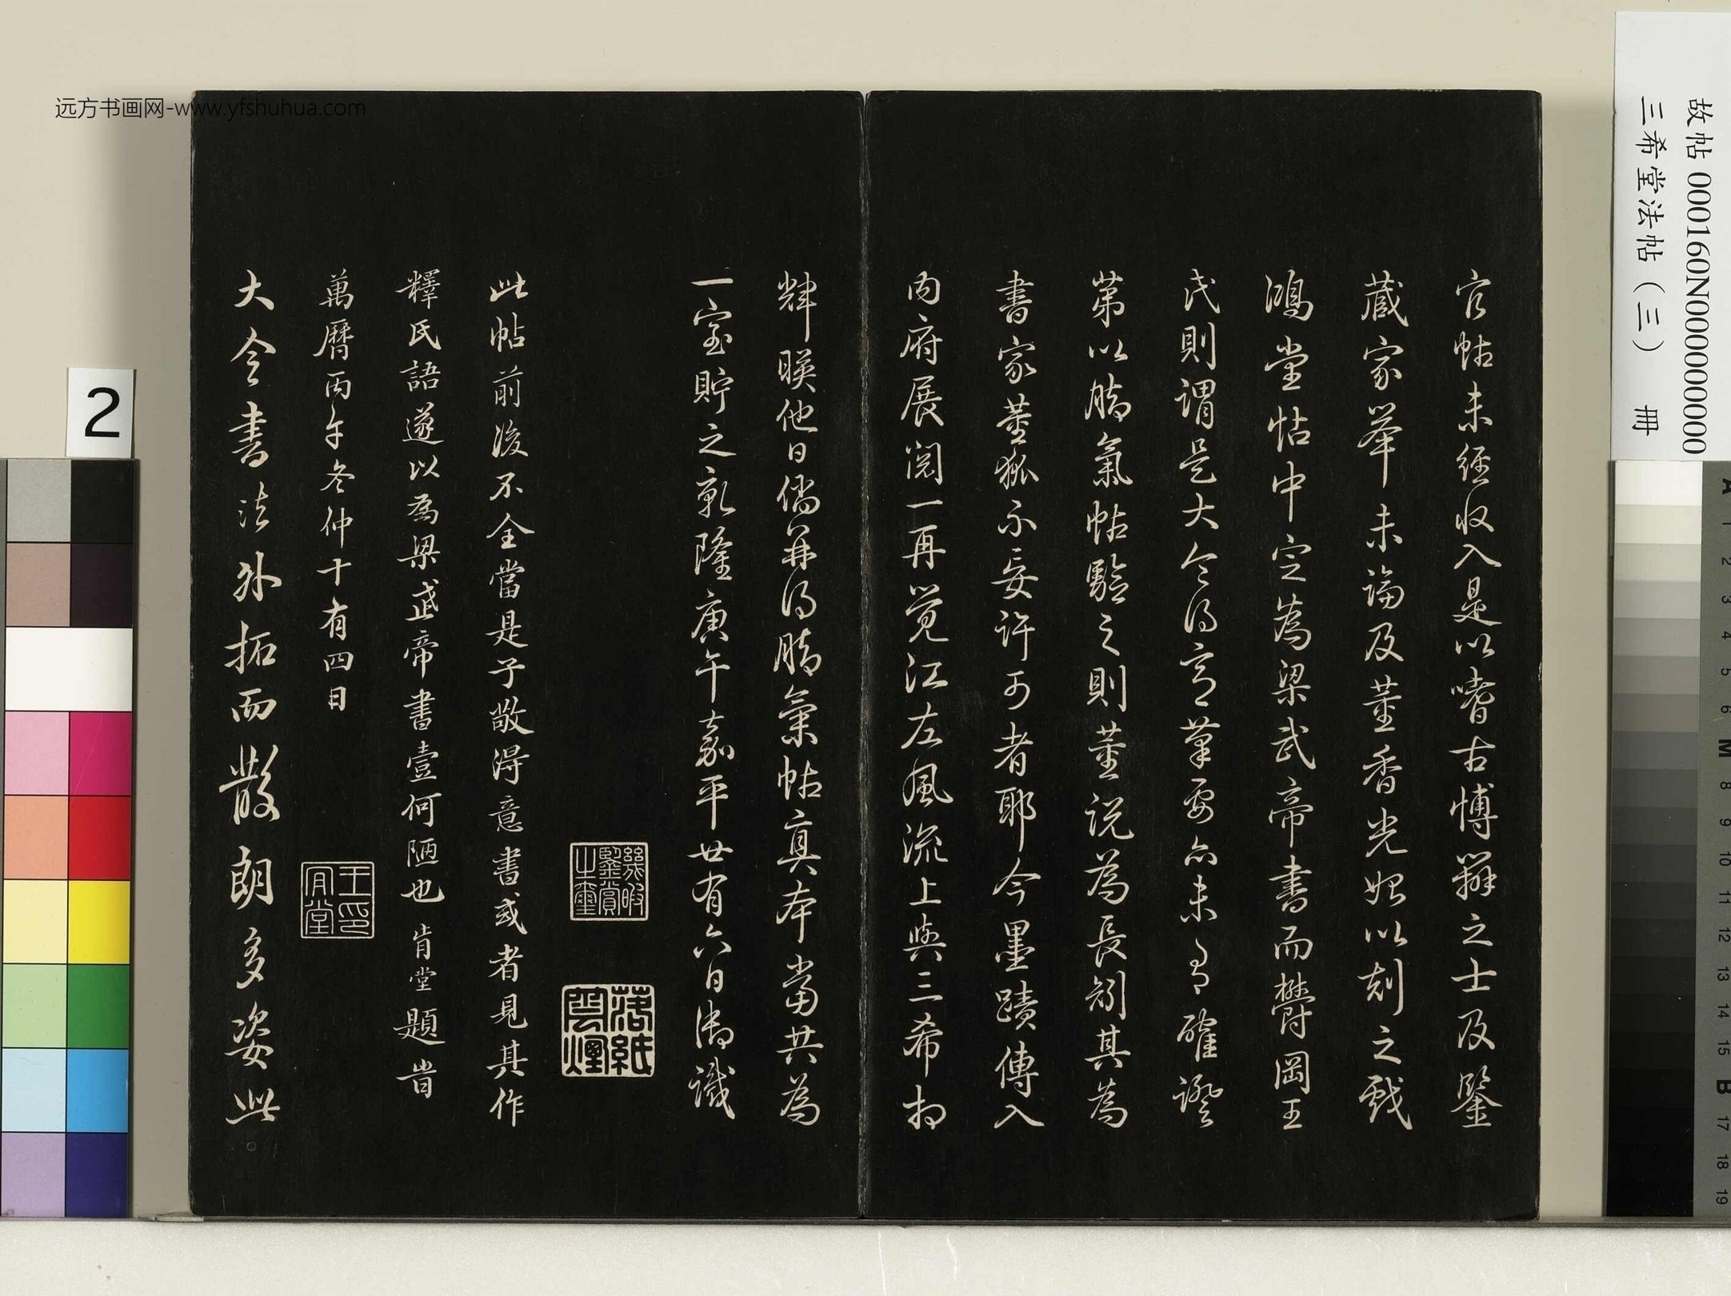 官帖未經收入是以嗜古博辯之士及鑒
藏家舉未論及董香光始以刻之戲
鴻堂帖中定為梁武帝書而欝岡王
氏則謂是大令得意筆要亦未有確證
第以腦氣帖驗之則董說為長耑其為
書家董狐不妄許可者耶今墨蹟傳入
內府展閱一再覺江左風流上與三希相
輝暎他日倘并得腦氣帖真本當共為
一室貯之乾隆庚午嘉平廿有六日御識
幾暇鑒賞之璽
落紙雲煙
此帖前後不全當是子敬得意書或者見其作
釋氏語遂以為梁武帝書壹何陋也 肯堂題旹
萬曆丙午冬仲十有四日
王肎堂印
大令書法外拓而散朗多姿此
故帖 000160N000000000
三希堂法帖（三） 冊
远方书画网-www.yfshuhua.com
2